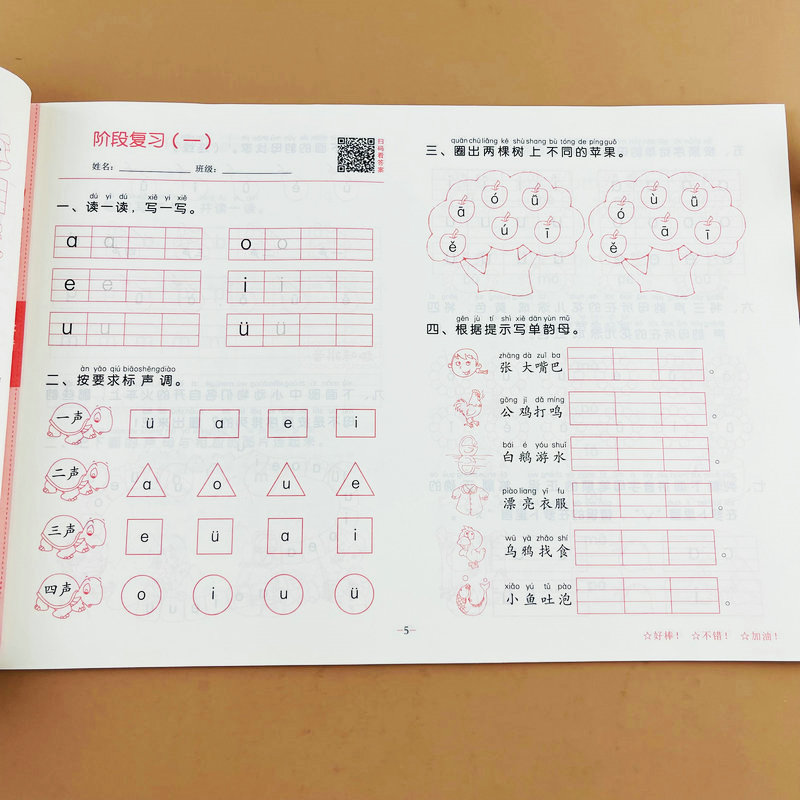 阶段复习（一）
扫码看答案
姓名： 班级：
dú yi dú xiě yi xiě
一、读一读，写一写。
a a o o
e e i i
u u ü ü
àn yāo qiú biāoshēngdiào
二、按要求标声调。
一声 ü a e i
二声 a o u e
三声 e ü a i
四声 o i u ü
quānchūliǎng kē shùshang bù tóng de píngguǒ
三、圈出两棵树上不同的苹果。
ā ó ǚ ě ú ī
ó ù ǚ ě ā ī
gēn jù tí shì xiě dānyùn mǔ
四、根据提示写单韵母。
zhāng dà zuǐ ba
张大嘴巴
gōng jī dǎ míng
公鸡打鸣
bái é yóu shuǐ
白鹅游水
piàoliang yī fu
漂亮衣服
wū yā zhǎo shí
乌鸦找食
xiǎo yú tǔ pào
小鱼吐泡
5
☆好棒！ ☆不错！ ☆加油！